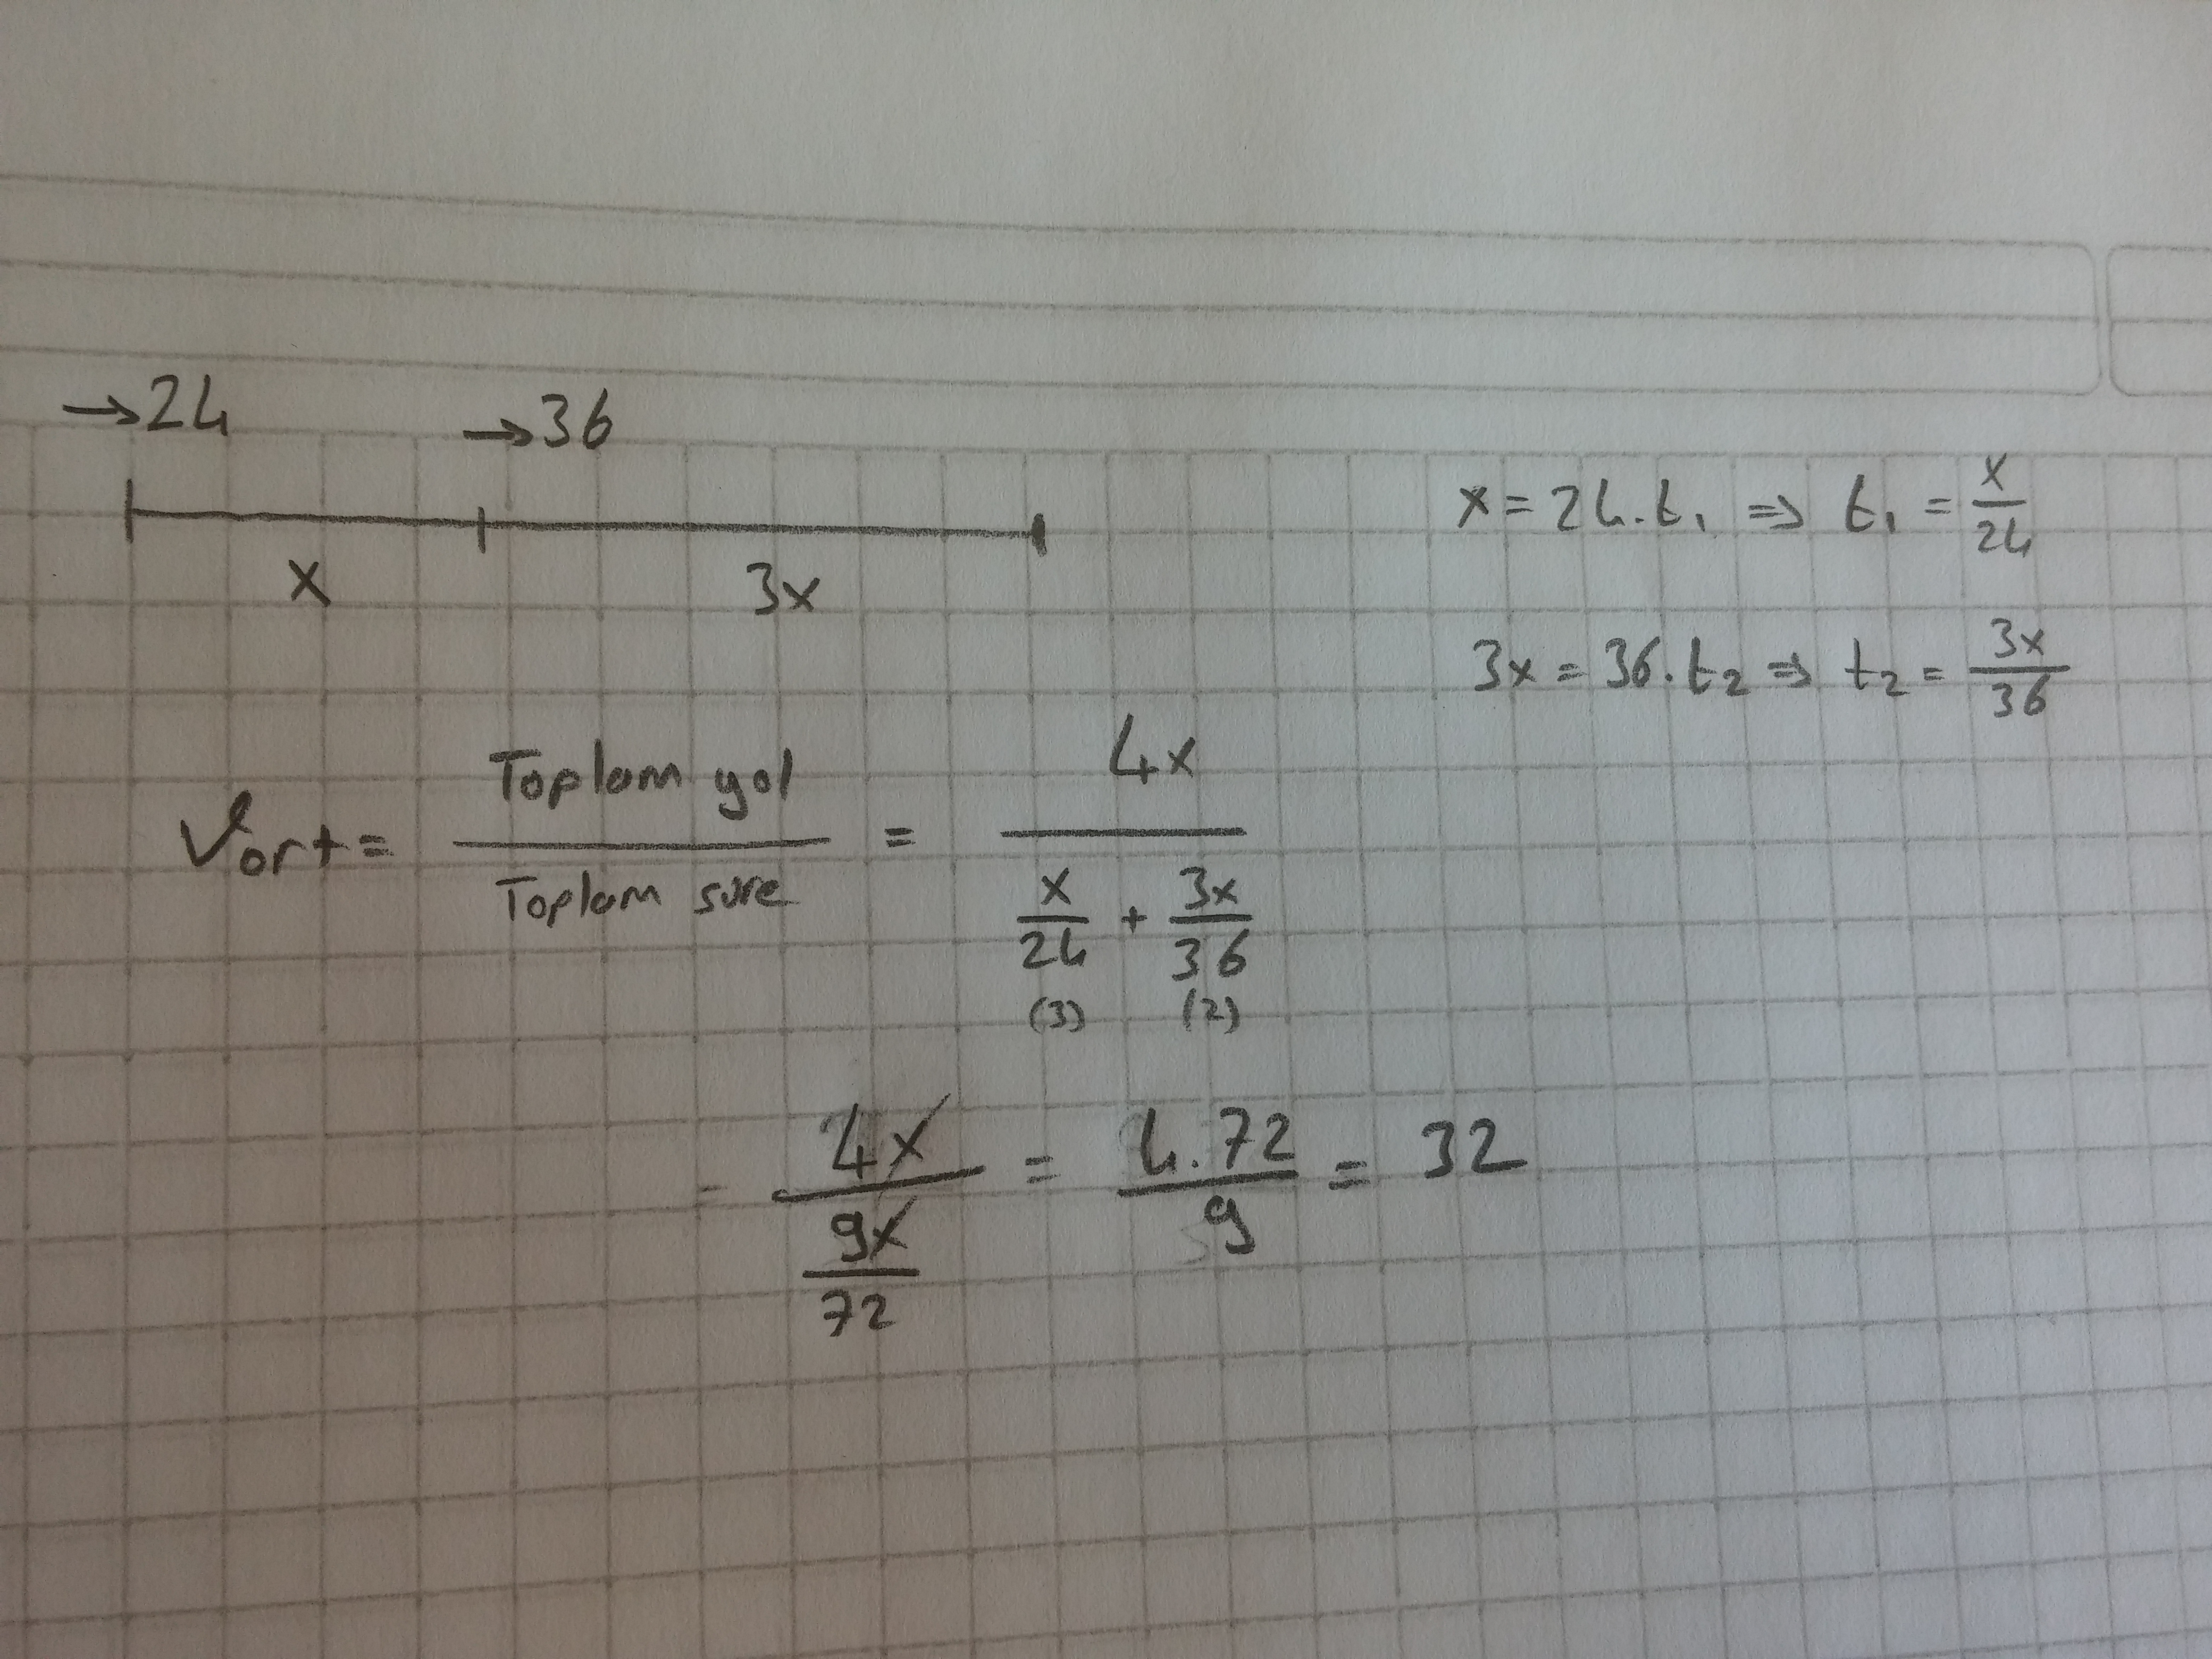 →24 →36
x 3x
x = 24.t₁ ⇒ t₁ = x/24
3x = 36.t₂ ⇒ t₂ = 3x/36
Vort = Toplam yol / Toplam süre = 4x / (x/24 + 3x/36)
(3) (2)
= 4x / (9x/72) = 4.72/9 = 32